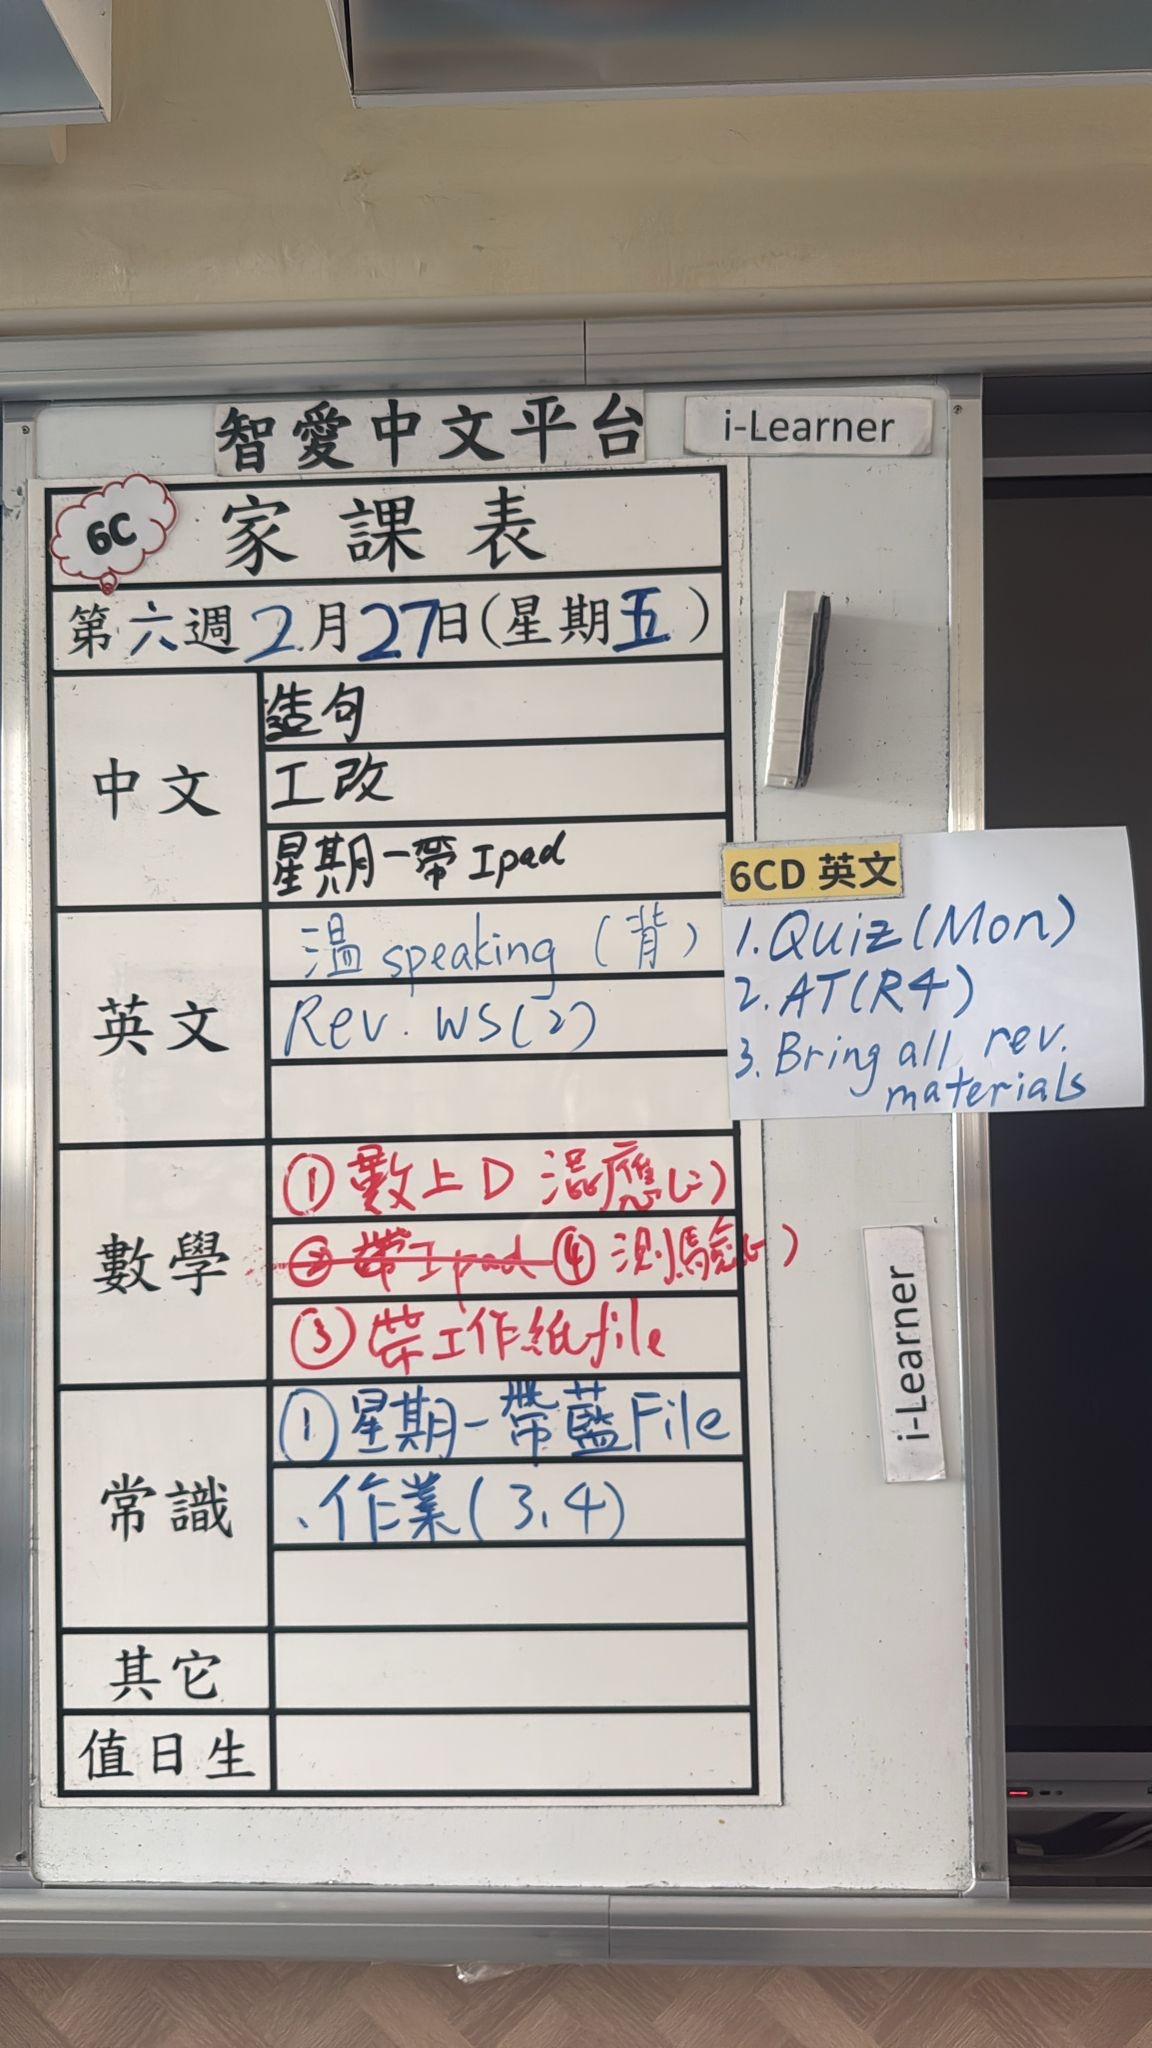 智愛中文平台
i-Learner
6C
家課表
第六週2月27日(星期五)
中文
造句
工改
星期一帶Ipad
英文
溫 speaking (背)
Rev. WS(2)
6CD 英文
1. Quiz (Mon)
2. AT(R4)
3. Bring all rev.
materials
數學
① 數上D 混應(二)
② 帶Ipad ④ 測驗
③ 帶工作紙file
i-Learner
常識
① 星期一帶藍File
、作業(3、4)
其它
值日生